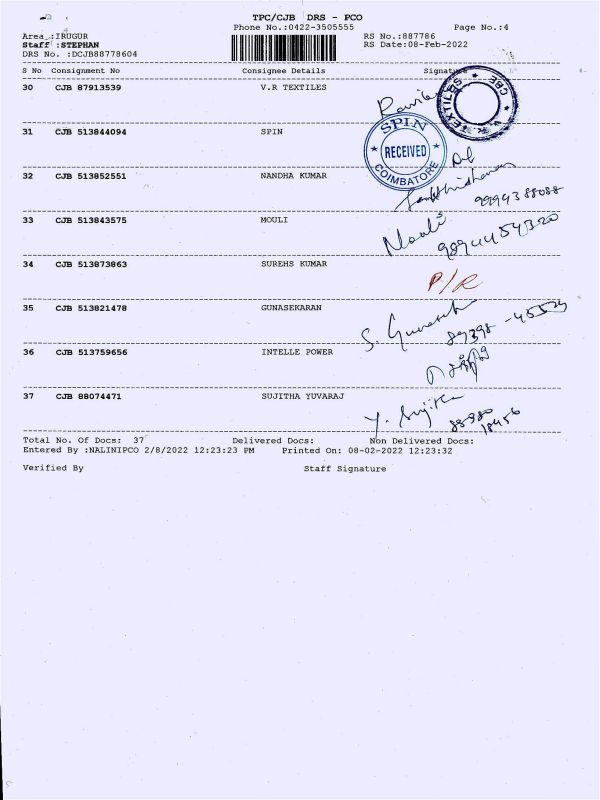 TPC/CJB DRS - PCO
Phone No.:0422-3505555 Page No.:4
Area :IRUGUR RS No.:887786
Staff :STEPHAN RS Date:08-Feb-2022
DRS No. :DCJB88778604
S No Consignment No Consignee Details Signature
30 CJB 87913539 V.R TEXTILES
TEXTILES CBE
31 CJB 513844094 SPIN
SPIN
RECEIVED
COIMBATORE
32 CJB 513852551 NANDHA KUMAR
9994388088
33 CJB 513843575 MOULI
Mouli
34 CJB 513873863 SUREHS KUMAR
P/R
35 CJB 513821478 GUNASEKARAN
S. Gunasek
89398-45529
36 CJB 513759656 INTELLE POWER
37 CJB 88074471 SUJITHA YUVARAJ
Y. Sujitha
88980
18456
Total No. Of Docs: 37 Delivered Docs: Non Delivered Docs:
Entered By :NALINIPCO 2/8/2022 12:23:23 PM Printed On: 08-02-2022 12:23:32
Verified By Staff Signature